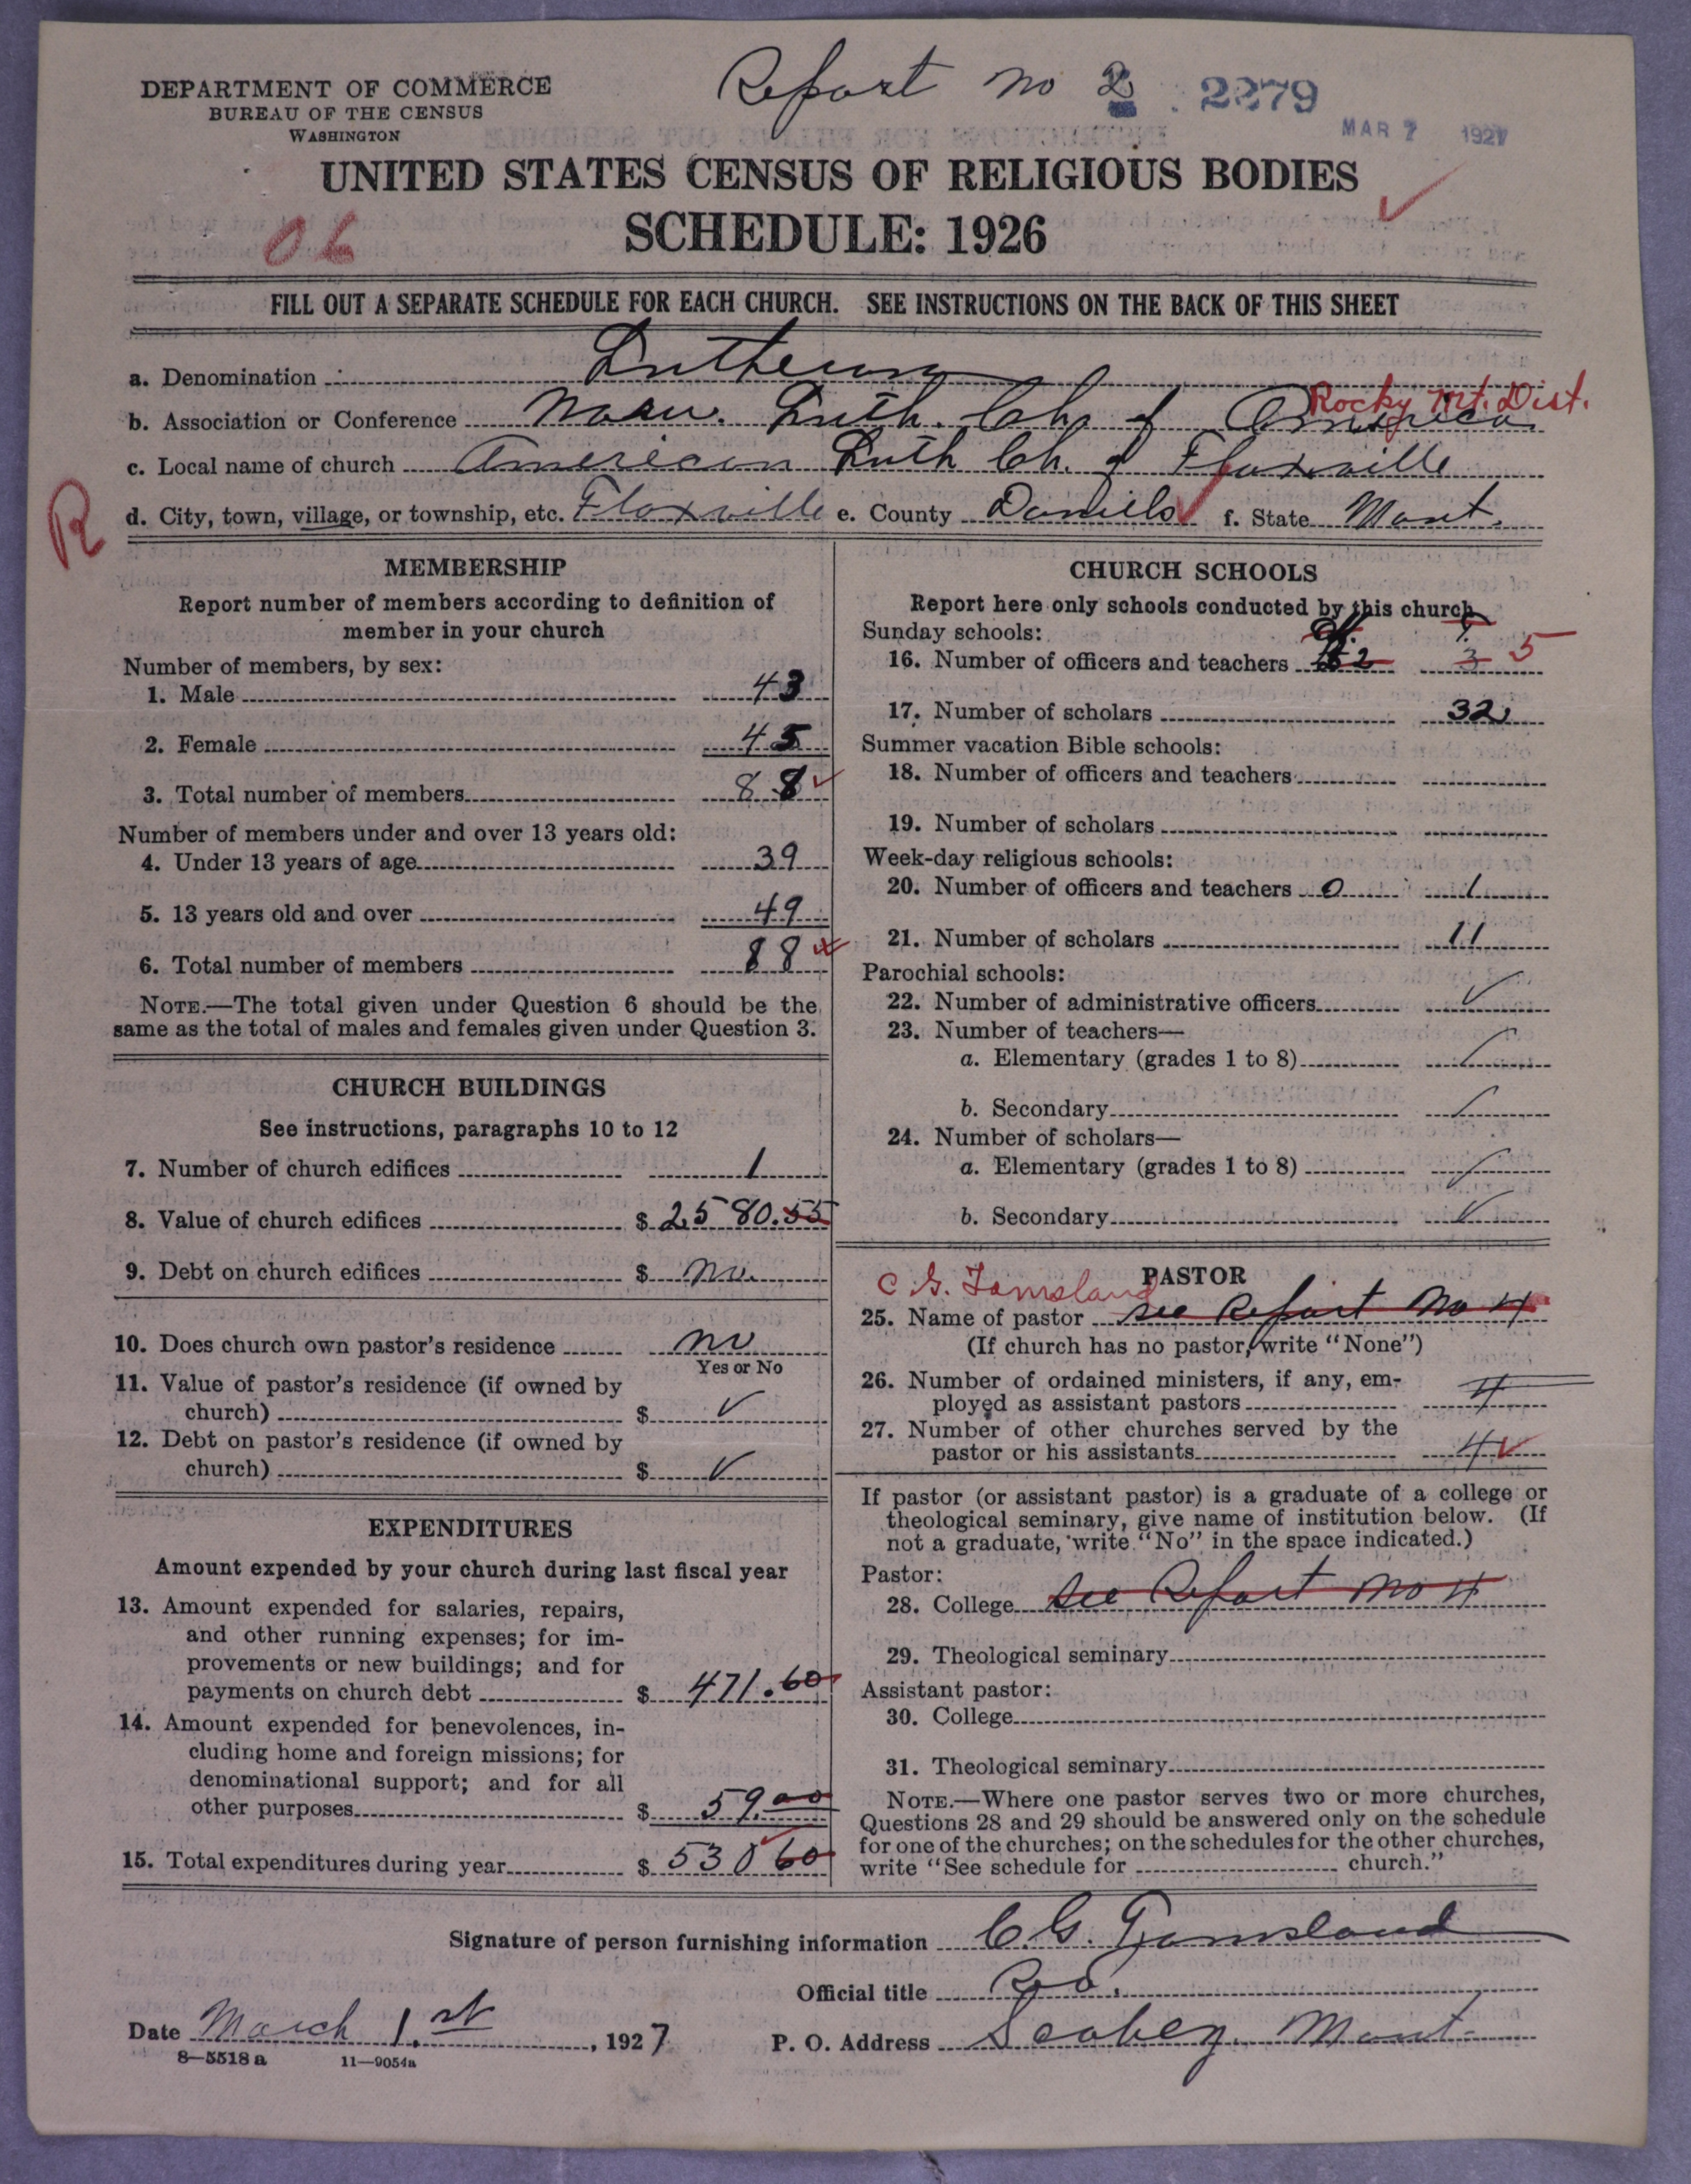 Report no 2 2279
DEPARTMENT OF COMMERCE
BUREAU OF THE CENSUS
WASHINGTON
MAR 7 1927
UNITED STATES CENSUS OF RELIGIOUS BODIES
SCHEDULE: 1926
06
FILL OUT A SEPARATE SCHEDULE FOR EACH CHURCH. SEE INSTRUCTIONS ON THE BACK OF THIS SHEET
a. Denomination Lutheran
Rocky Mt. Dist.
b. Association or Conference Norw. Luth. Ch. of America
c. Local name of church American Luth Ch. of Flaxville
R
d. City, town, village, or township, etc. Flaxville e. County Daniels f. State Mont.
MEMBERSHIP
Report number of members according to definition of
member in your church
Number of members, by sex:
1. Male 43
2. Female 45
3. Total number of members 88
Number of members under and over 13 years old:
4. Under 13 years of age 39
5. 13 years old and over 49
6. Total number of members 88
NOTE.—The total given under Question 6 should be the
same as the total of males and females given under Question 3.
CHURCH BUILDINGS
See instructions, paragraphs 10 to 12
7. Number of church edifices 1
8. Value of church edifices $ 2580.55
9. Debt on church edifices $ no.
10. Does church own pastor's residence no
Yes or No
11. Value of pastor's residence (if owned by
church) $ ✓
12. Debt on pastor's residence (if owned by
church) $ ✓
EXPENDITURES
Amount expended by your church during last fiscal year
13. Amount expended for salaries, repairs,
and other running expenses; for im-
provements or new buildings; and for
payments on church debt $ 471.60
14. Amount expended for benevolences, in-
cluding home and foreign missions; for
denominational support; and for all
other purposes $ 59.00
15. Total expenditures during year $ 530 60
CHURCH SCHOOLS
Report here only schools conducted by this church
Sunday schools:
16. Number of officers and teachers 2 3 5
17. Number of scholars 32
Summer vacation Bible schools:
18. Number of officers and teachers
19. Number of scholars
Week-day religious schools:
20. Number of officers and teachers 0 1
21. Number of scholars 11
Parochial schools:
22. Number of administrative officers ✓
23. Number of teachers—
a. Elementary (grades 1 to 8) ✓
b. Secondary ✓
24. Number of scholars—
a. Elementary (grades 1 to 8) ✓
b. Secondary ✓
PASTOR
C G. Tomsland
25. Name of pastor see Report No 4
(If church has no pastor, write "None")
26. Number of ordained ministers, if any, em-
ployed as assistant pastors 4
27. Number of other churches served by the
pastor or his assistants 4
If pastor (or assistant pastor) is a graduate of a college or
theological seminary, give name of institution below. (If
not a graduate, write "No" in the space indicated.)
Pastor:
28. College See Report no 4
29. Theological seminary
Assistant pastor:
30. College
31. Theological seminary
NOTE.—Where one pastor serves two or more churches,
Questions 28 and 29 should be answered only on the schedule
for one of the churches; on the schedules for the other churches,
write "See schedule for church."
Signature of person furnishing information C. G. Tomsland
Official title
Date March 1. st, 1927 P. O. Address Scobey. Mont.
8—5518 a 11—9054a